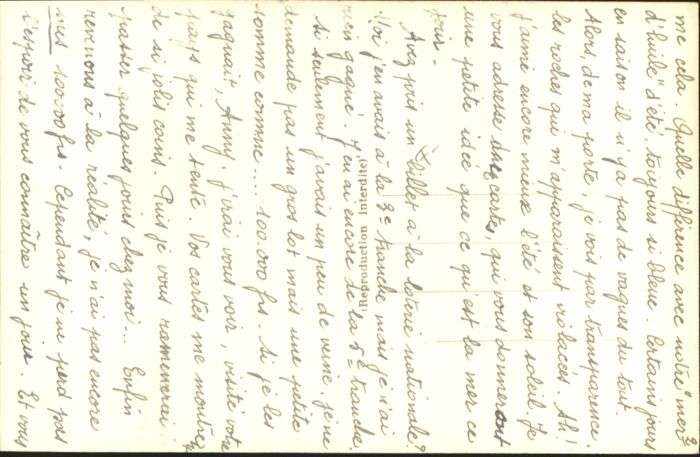 me cela. Quelle différence avec notre "mer
d'huile" d'été, toujours si bleue. Certains jours
en saison il n'y a pas de vagues du tout.
Alors, de ma porte, je vois par transparence,
les roches qui m'apparaissent violacées. Ah!
j'aime encore mieux l'été et son soleil. Je
vous adresse cartes, qui vous donneront
une petite idée que ce qu'est la mer ce
jour-
Avez pris un billet à la loterie nationale?
Moi j'en avais à la 3e tranche mais je n'ai
rien gagné. J'en ai encore de la 5e tranche.
Reproduction interdite.
Si seulement j'avais un peu de veine, je ne
demande pas un gros lot mais une petite
somme comme... 100.000 frs. Si je les
gagnait, Anny, j'irai vous voir, visité votre
pays qui me tente. Vos cartes me montrez
de si jolis coins. Puis je vous ramenerai
passer quelques jours chez moi... Enfin
revenons à la réalité, je n'ai pas encore
mes 100000 frs. Cependant je ne perd pas
l'espoir de vous connaître un jour. Et vous